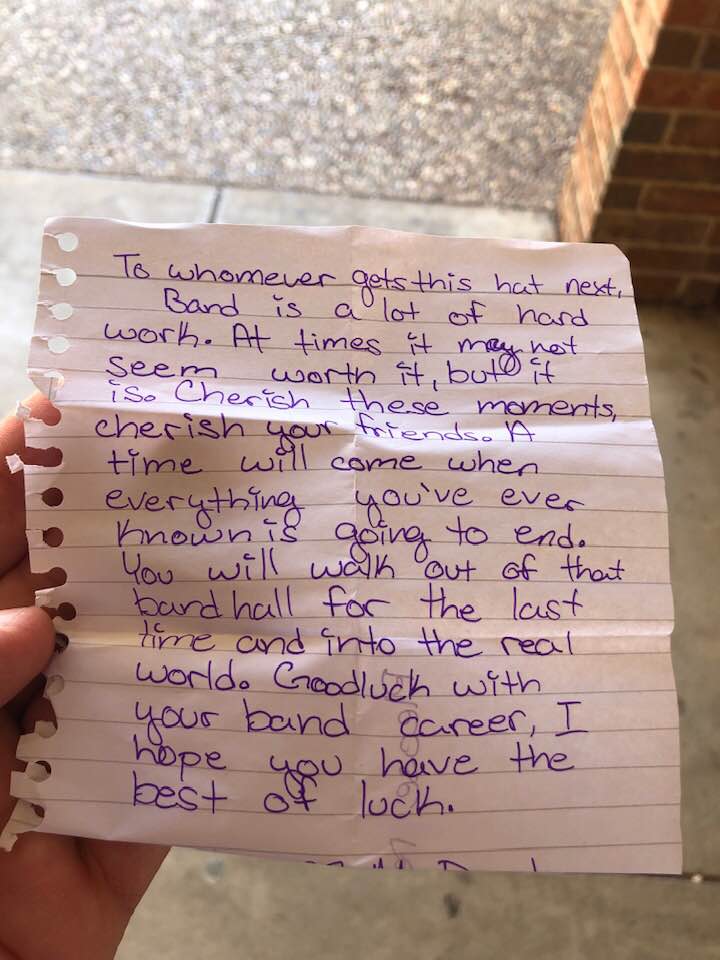 To whomever gets this hat next,
Band is a lot of hard
work. At times it may not
seem worth it, but it
is. Cherish these moments,
cherish your friends. A
time will come when
everything you've ever
known is going to end.
You will walk out of that
band hall for the last
time and into the real
world. Goodluck with
your band career, I
hope you have the
best of luck.